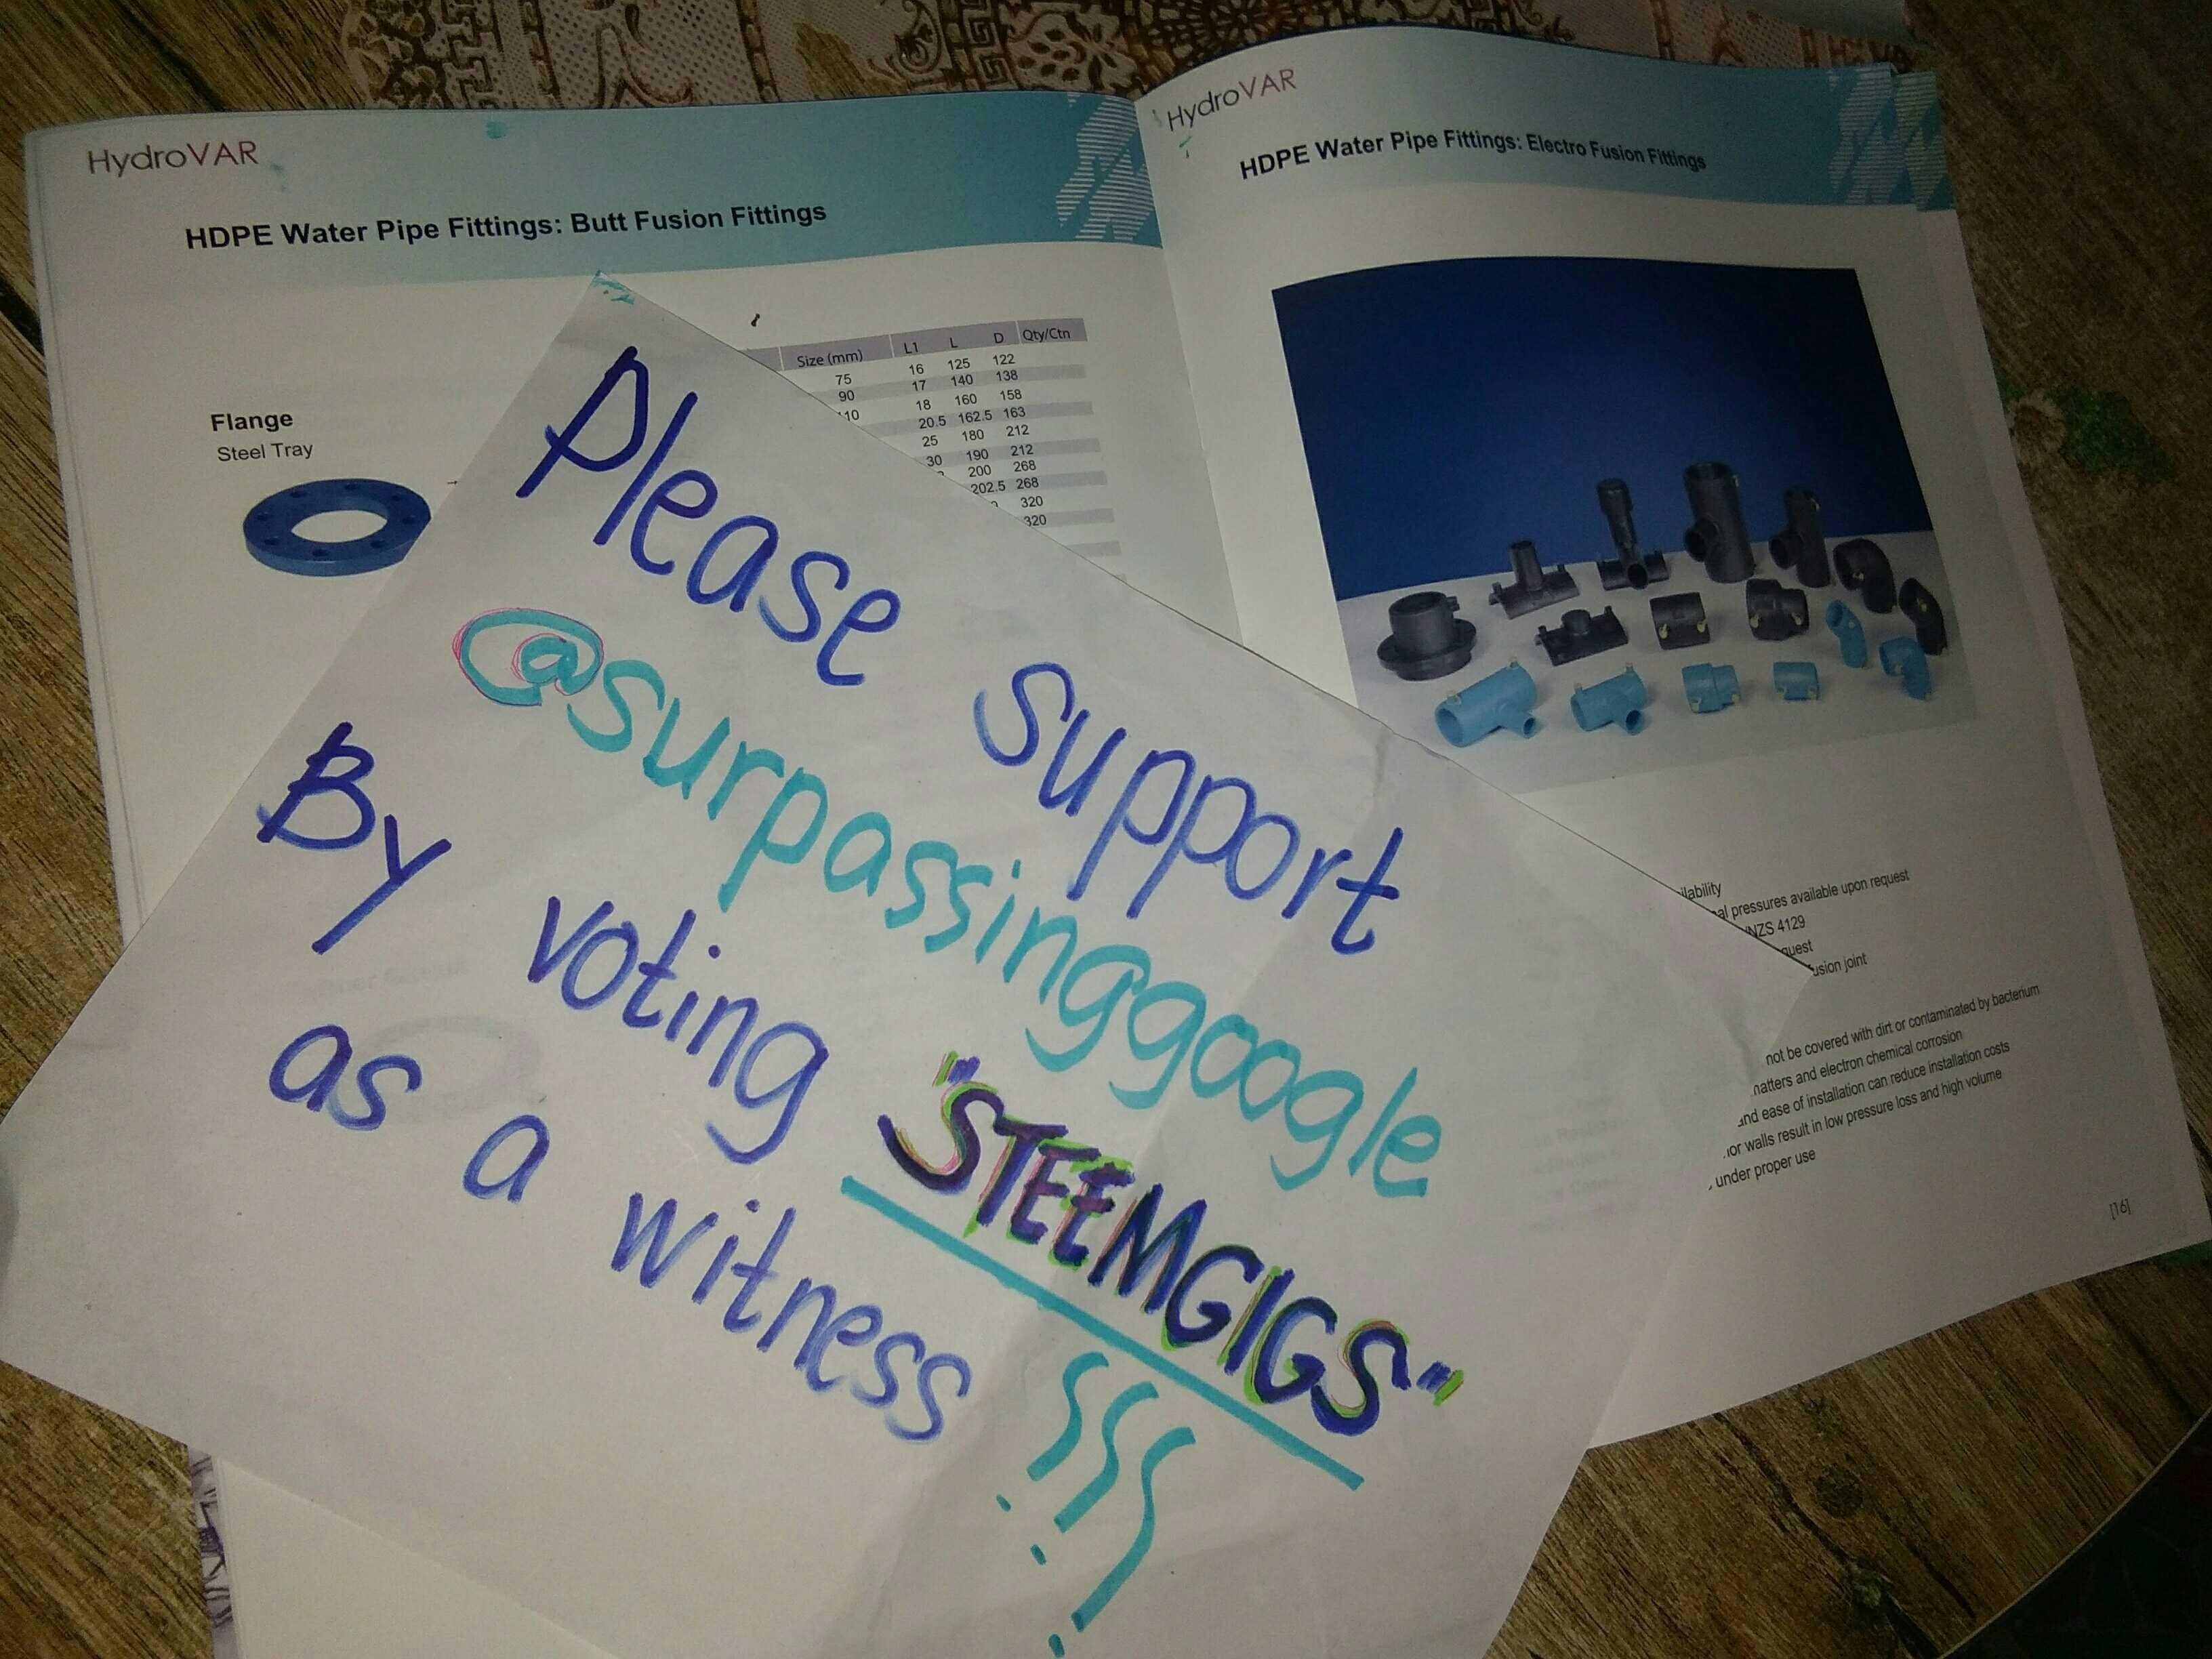 HydroVAR
HDPE Water Pipe Fittings: Butt Fusion Fittings
Flange
Steel Tray
Size (mm) L1 L D Qty/Ctn
75 16 125 122
90 17 140 138
110 18 160 158
20.5 162.5 163
25 180 212
30 190 212
200 268
202.5 268
320
320
HydroVAR
HDPE Water Pipe Fittings: Electro Fusion Fittings
pressures available upon request
NZS 4129
joint
not be covered with dirt or contaminated by bacterium
and electron chemical corrosion
ease of installation can reduce installation costs
walls result in low pressure loss and high volume
under proper use
[16]
Please support
@surpassinggoogle
By voting "STEEMGIGS"
as a witness !!!